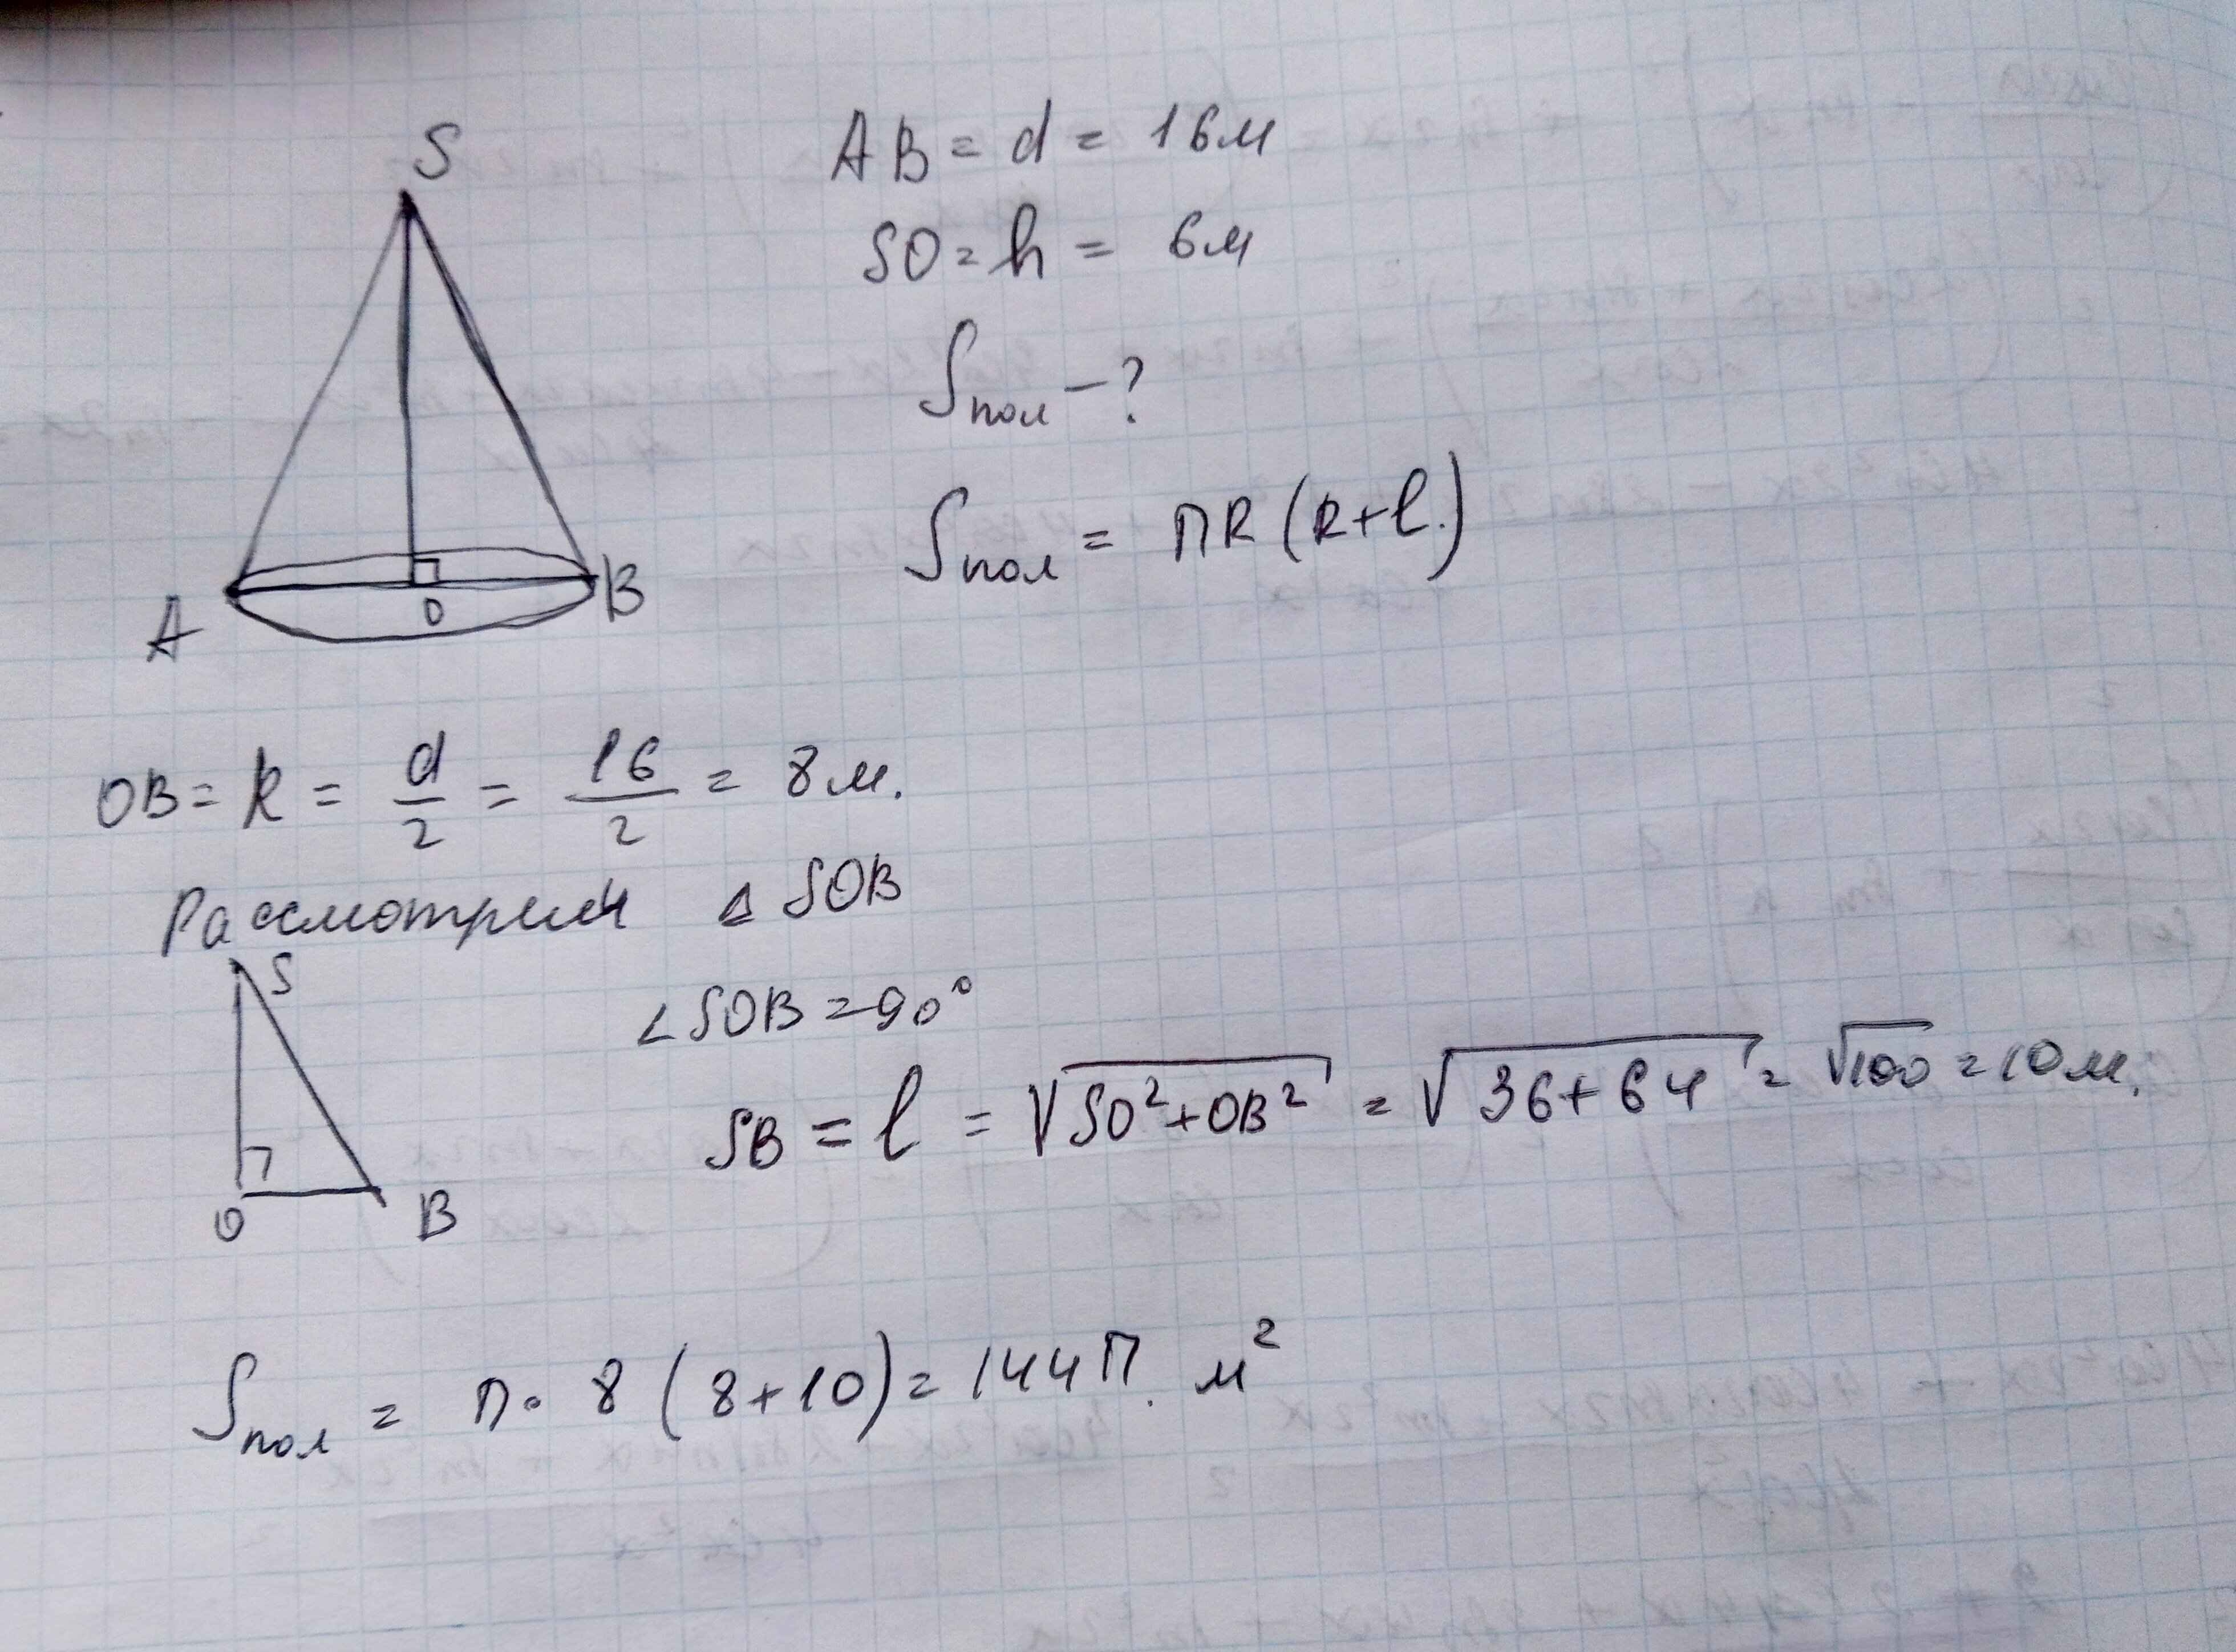 S
AB = d = 16м
SO = h = 6м
Sпол - ?
Sпол = пR (R+l.)
A O B
OB = R = d/2 = 16/2 = 8 м.
Рассмотрим ΔSOB
S
∠SOB = 90°
SB = l = √SO²+OB² = √36+64 = √100 = 10 м.
O B
Sпол = п· 8 ( 8+10) = 144П. м²